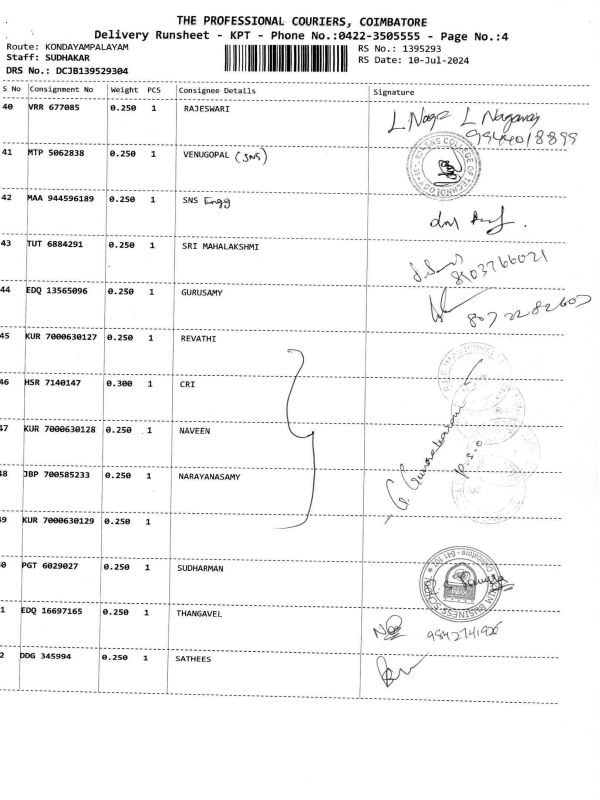 THE PROFESSIONAL COURIERS, COIMBATORE
Delivery Runsheet - KPT - Phone No.:0422-3505555 - Page No.:4
Route: KONDAYAMPALAYAM
Staff: SUDHAKAR
DRS No.: DCJB139529304
RS No.: 1395293
RS Date: 10-Jul-2024
S No Consignment No Weight PCS Consignee Details Signature
40 VRR 677085 0.250 1 RAJESWARI L Naga L Nagaraj
9944018899
41 MTP 5062838 0.250 1 VENUGOPAL (SNS) SNS COLLEGE OF TECHNOLOGY
42 MAA 944596189 0.250 1 SNS Engg
43 TUT 6884291 0.250 1 SRI MAHALAKSHMI 8903766021
44 EDQ 13565096 0.250 1 GURUSAMY 8072282607
45 KUR 7000630127 0.250 1 REVATHI
46 HSR 7140147 0.300 1 CRI
47 KUR 7000630128 0.250 1 NAVEEN
48 JBP 700585233 0.250 1 NARAYANASAMY
49 KUR 7000630129 0.250 1
0 PGT 6029027 0.250 1 SUDHARMAN
1 EDQ 16697165 0.250 1 THANGAVEL
2 DDG 345994 0.250 1 SATHEES